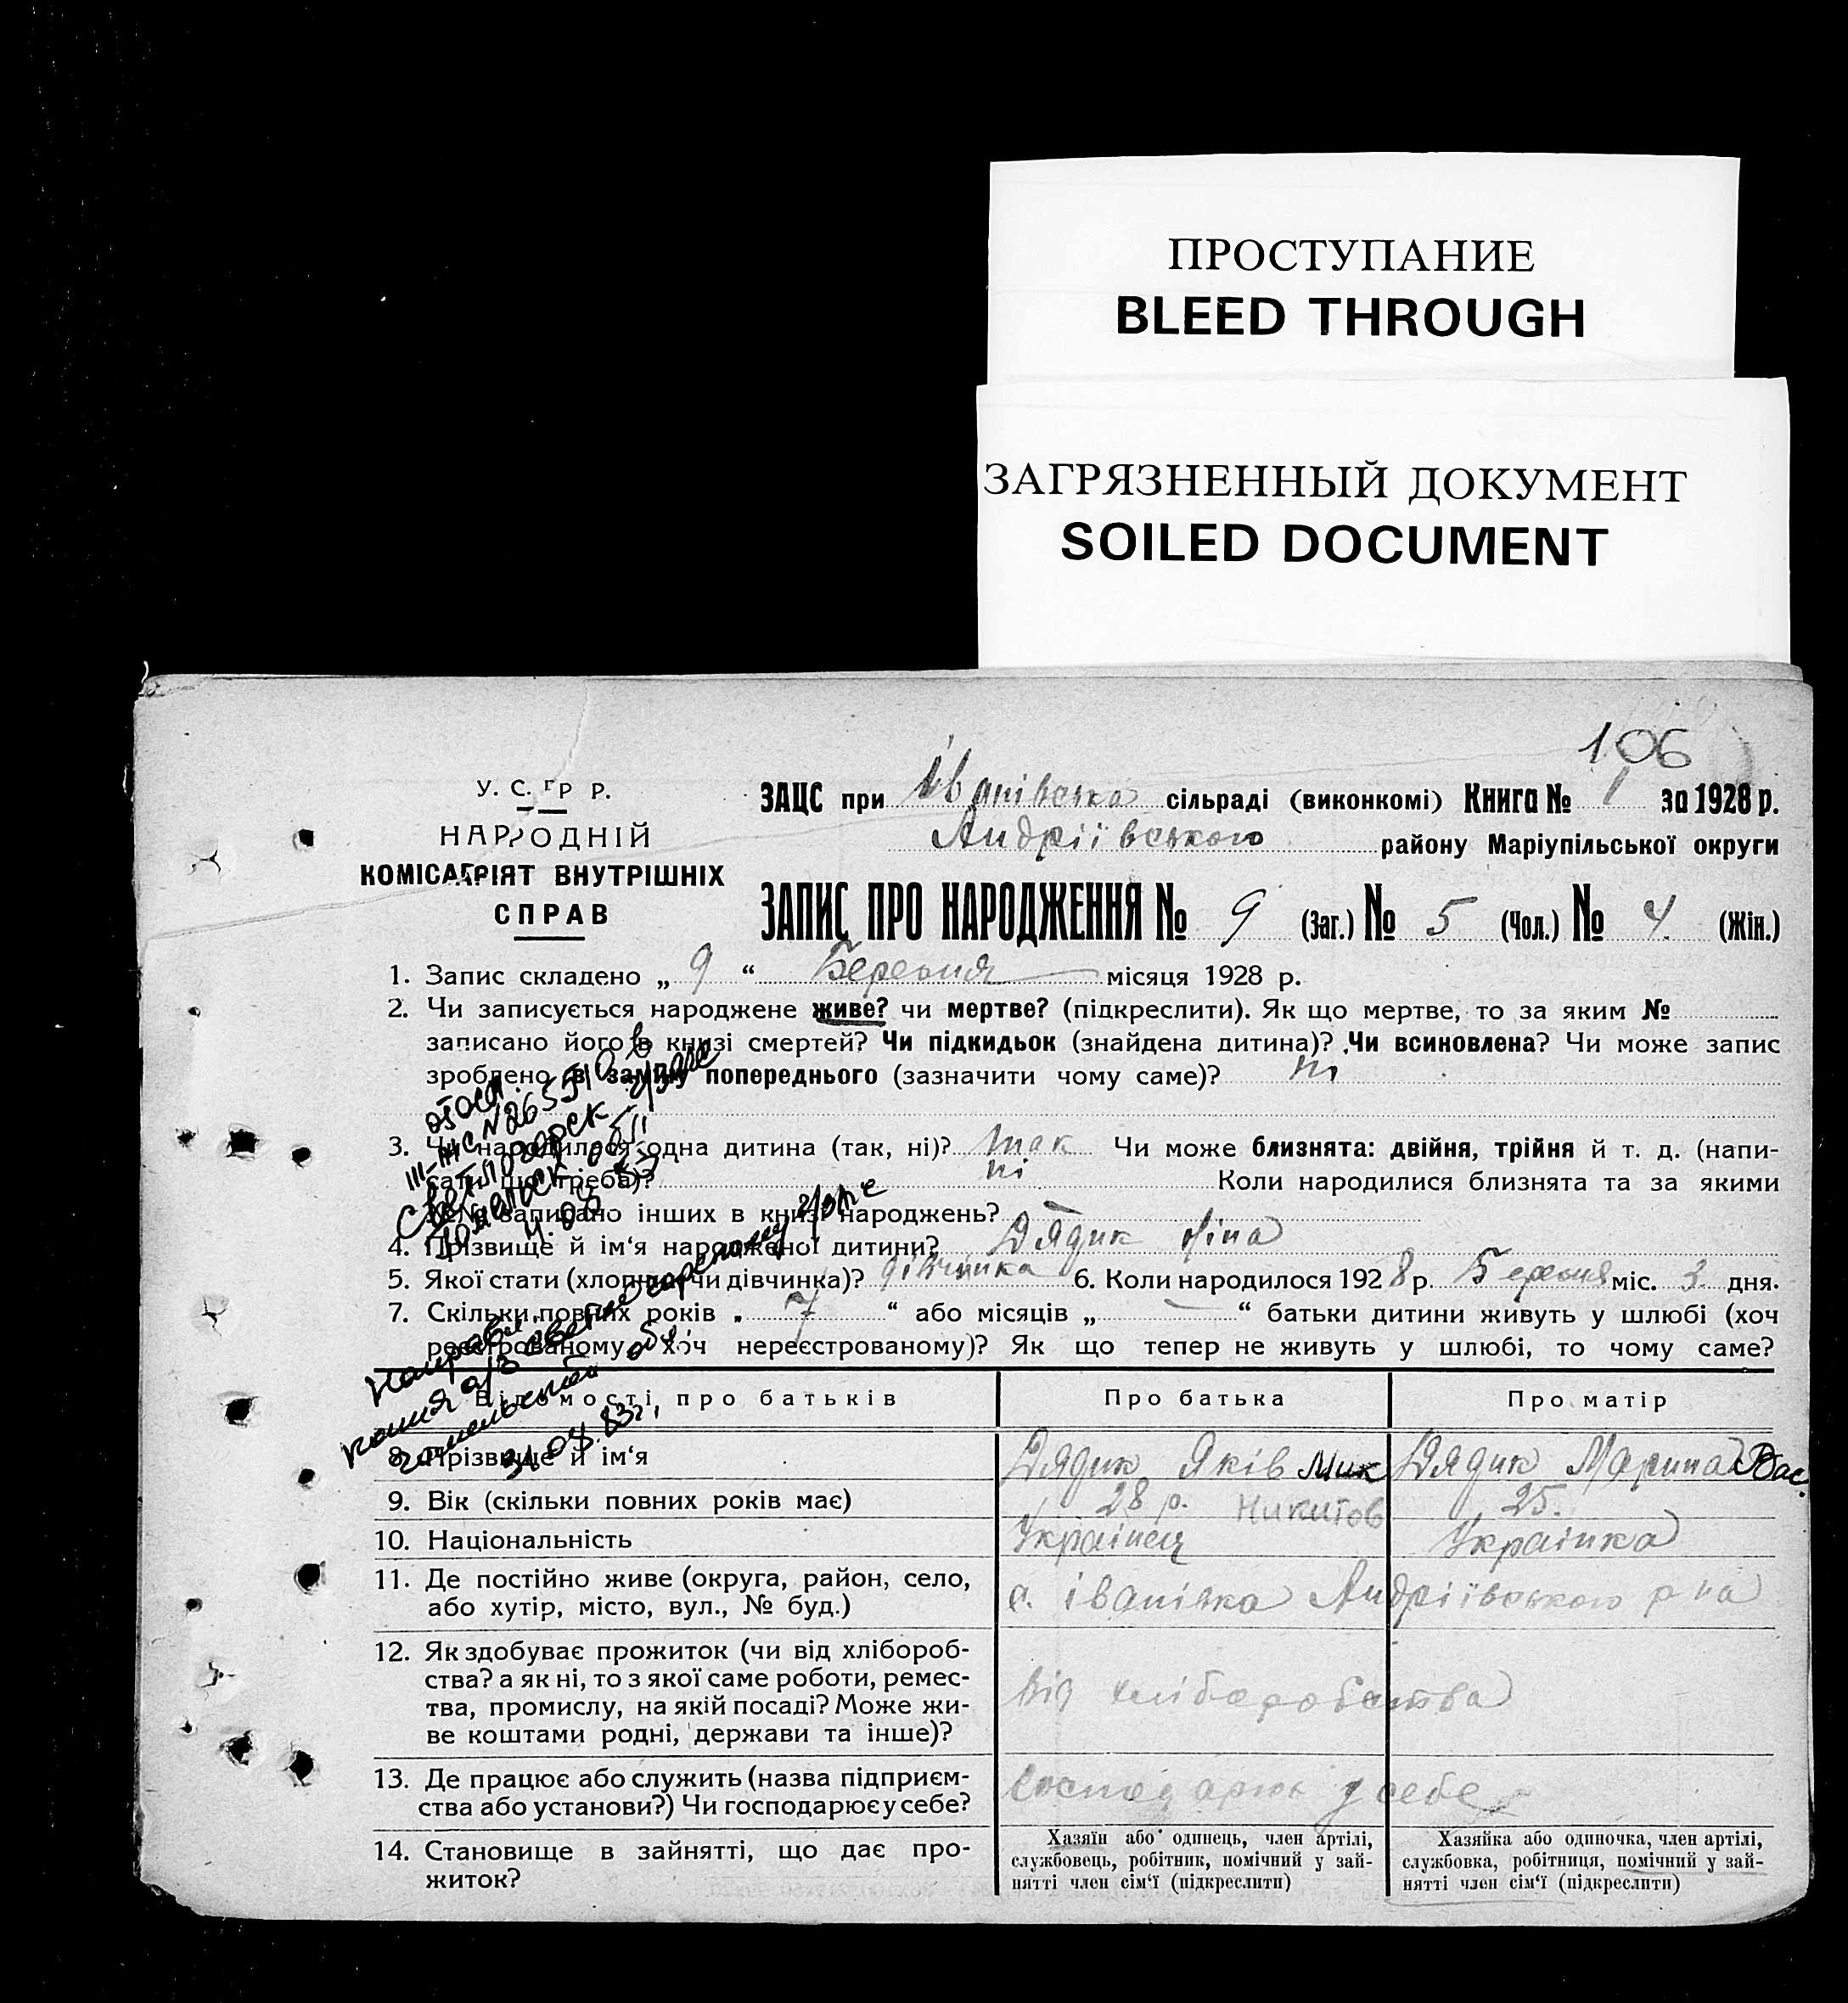 ПРОСТУПАНИЕ
BLEED THROUGH
ЗАГРЯЗНЕННЫЙ ДОКУМЕНТ
SOILED DOCUMENT
106
У. С. Р Р.
НАРОДНІЙ
КОМІСАРІЯТ ВНУТРІШНІХ
СПРАВ
ЗАЦС при Іванівська сільраді (виконкомі) Книга № 1 за 1928 р.
Андріївського району Маріупільської округи
ЗАПИС ПРО НАРОДЖЕННЯ № 9 (Заг.) № 5 (Чол.) № 4 (Жін.)
1. Запис складено „ 9 “ Березня місяця 1928 р.
2. Чи записується народжене живе? чи мертве? (підкреслити). Як що мертве, то за яким №
записано його в книзі смертей? Чи підкидьок (знайдена дитина)? Чи всиновлена? Чи може запис
зроблено в заміну попереднього (зазначити чому саме)? ні
3. Чи народилася одна дитина (так, ні)? так Чи може близнята: двійня, трійня й т. д. (напи-
сати що треба)? ні Коли народилися близнята та за якими
№№ записано інших в книзі народжень?
4. Прізвище й ім‘я народженої дитини? Дядик Ніна
5. Якої стати (хлопчик чи дівчинка)? дівчинка 6. Коли народилося 1928 р. Березня міс. 3 дня.
7. Скільки повних років „ 7 “ або місяців „ — “ батьки дитини живуть у шлюбі (хоч
реєстрованому, хоч нереєстрованому)? Як що тепер не живуть у шлюбі, то чому саме?
повт.
III-ЖС № 265510 в
Светлогорск г/загс
Гомельск обл
Направлен
копия а/з Светлогорскому г/загс
Гомельской обл.
31.04.83г.
Відомості про батьків Про батька Про матір
8. Прізвище й ім‘я Дядик Яків Мик Дядик Марина Вас.
9. Вік (скільки повних років має) 28 р. Никитов 25.
10. Національність Українец Українка
11. Де постійно живе (округа, район, село, або хутір, місто, вул., № буд.) с. Іванівка Андріївського р на
12. Як здобуває прожиток (чи від хлібороб-
ства? а як ні, то з якої саме роботи, ремес-
тва, промислу, на якій посаді? Може жи-
ве коштами родні, держави та інше)? від хліборобства
13. Де працює або служить (назва підприєм-
ства або установи?) Чи господарює у себе? Господарює у себе
14. Становище в зайнятті, що дає про-
житок?
Хазяїн або одинець, член артілі,
службовець, робітник, помічний у зай-
нятті член сім‘ї (підкреслити)
Хазяйка або одиночка, член артілі,
службовка, робітниця, помічний у зай-
нятті член сім‘ї (підкреслити)